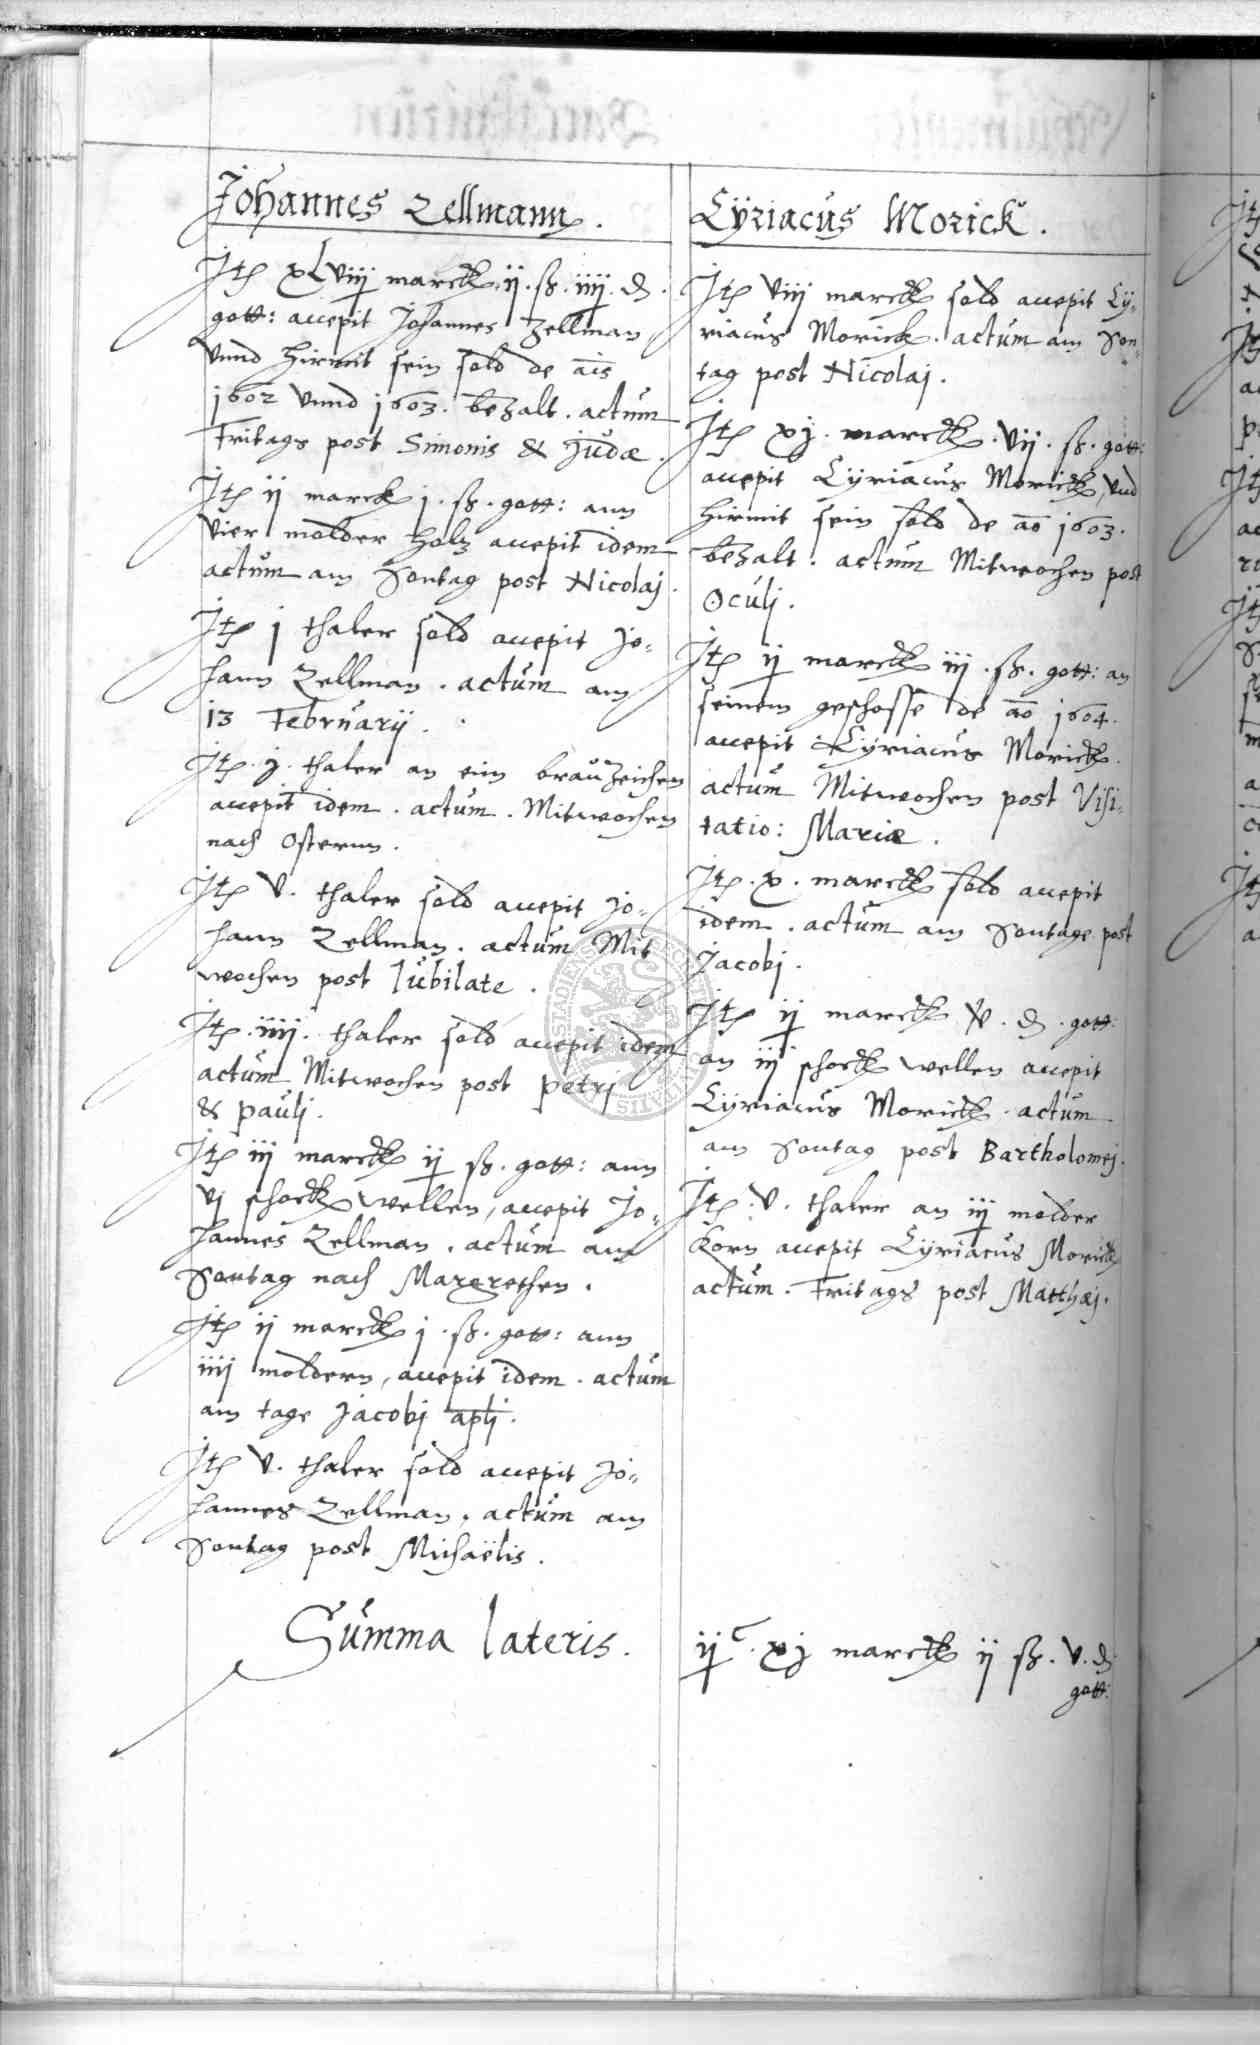 Johannes Zellmann.
Itẽ xLviij marck. ij. ß. iiij. ₰.
gott: accepit Johannes Zellman
vnnd hirmit sein sold de ais
1602 vnnd 1603. bezalt. actum
Fritags post Simonis & Judæ.
Itẽ ij marck j. ß. gott: ann
vier molder holtz accepit idem
actum am Sontag post Nicolaj.
Itẽ j thaler sold accepit Jo=
hann Zellman. actum am
13 Februarij.
Itẽ. j. thaler an eim brauzeichen
accepit idem. actum. Mitwochen
nach Osternn.
Itẽ v. thaler sold accepit Jo=
hann Zellman. actum Mit
wochen post Iubilate.
Itẽ. iiij. thaler sold accepit idem
actum Mitwochen post Petrj
& Paulj.
Itẽ iij marck ij ß. gott: ann
vj schock wellen, accepit Jo=
hannes Zellman. actum am
Sontag nach Margrethen.
Itẽ ij marck j. ß. gott: ann
iiij moldern, accepit idem. actum
am tage Jacobj aplj.
Itẽ v. thaler sold accepit Jo=
hannes Zellman. actum am
Sontag post Michaëlis.
Summa lateris.
Cÿriacus Morick.
Itẽ viij marck sold accepit Cÿ=
riacus Morick. actum am Son=
tag post Nicolaj.
Itẽ xj. marck. vij. ß. gott:
accepit Cÿriacus Morick, vnd
hirmit sein sold de ao 1603.
bezalt. actum Mitwochen post
Oculj.
Itẽ ij marck iij. ß. gott: an
seinem geschosse de ao 1604.
accepit Cÿriacus Morick.
actum Mitwochen post Visi=
tatio: Mariæ.
Itẽ. x. marck sold accepit
idem. actum am Sontage post
Jacobj.
Itẽ ij marck v. ₰. gott:
an iij schock wellen accepit
Cÿriacus Morick. actum
am Sontag post Bartholomej.
Itẽ. v. thaler an iij molder
Korn accepit Cÿriacus Morick
actum. Fritags post Matthæj.
ij c. xj marck ij ß. v. ₰
gott: